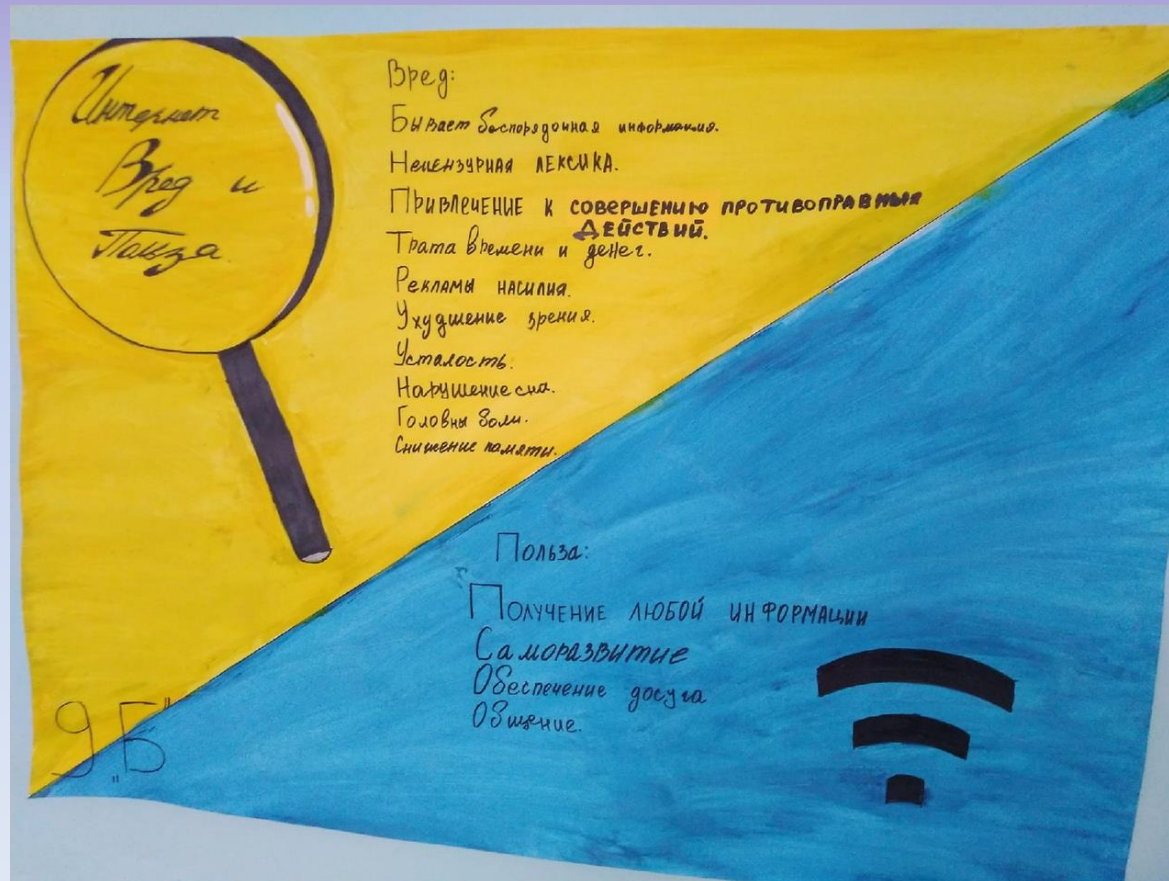 Интернет
Вред и
Польза.
Вред:
Бывает беспорядочная информация.
Нецензурная лексика.
Привлечение к совершению противоправных
действий.
Трата времени и денег.
Рекламы насилия.
Ухудшение зрения.
Усталость.
Нарушение сна.
Головны боли.
Снижение памяти.
Польза:
Получение любой информации
Саморазвитие
Обеспечение досуга
Общение.
9 „Б"